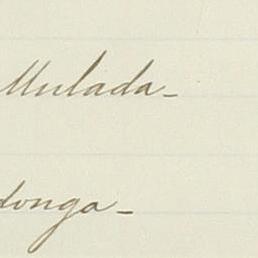 Mulada_
donga_